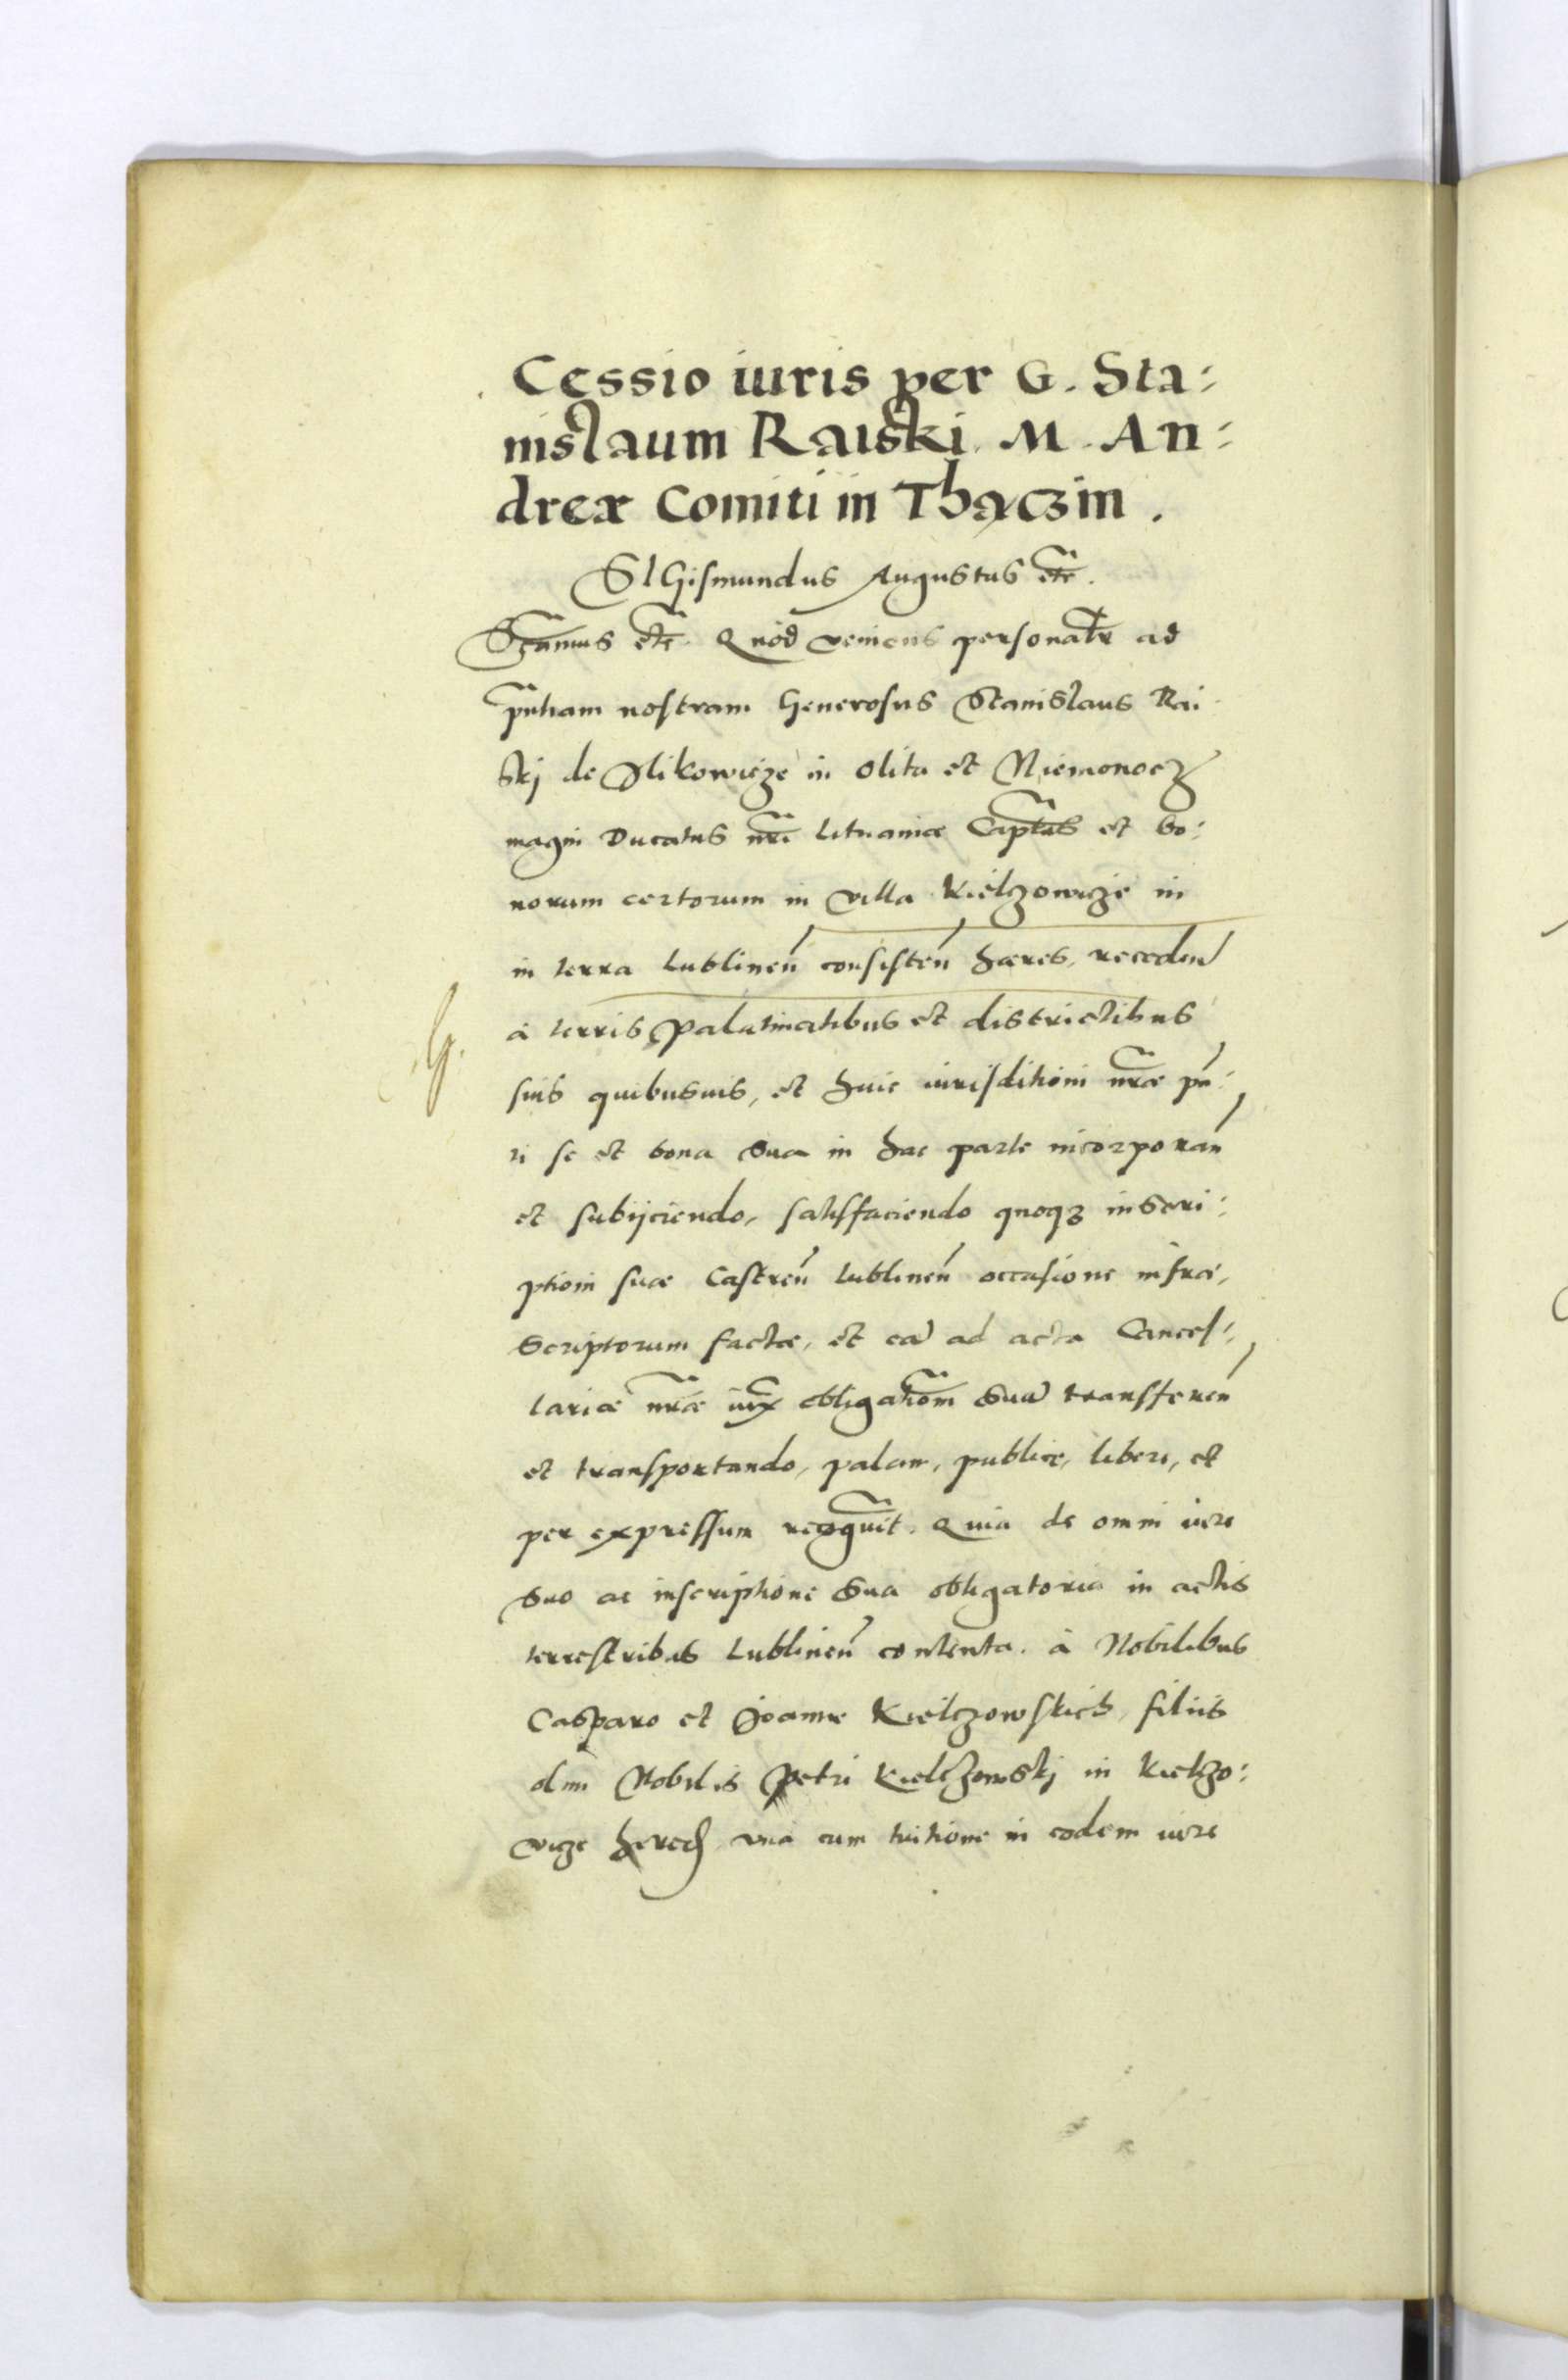 Cessio iuris per G. Sta:
nislaum Raiski. M. An:
dreæ Comiti in Thączin.
SIGismundus Augustus etc.
Sgamus etc. Quod veniens personalr ad
pntiam nostram Generosus Stanislaus Rai
skj de Olikowicze in Olita et Niemonocz
magni Ducatus nri Lituaniæ Captus et bo:
norum certorum in villa Kielzowicze in
in terra Lublinen consisten hæres, receden
à terris Palatinatibus et districtibus
G.
suis quibusvis, et huic iurisditioni nræ pn:
ti se et bona sua in hac parte incorporan
et subijciendo, satisfaciendo quoqz inscri:
ptioni suæ Castren Lublinen occasione infra,
scriptorum factæ, et ea ad acta Cancel:
lariæ nræ iux obligationem sua transferen
et transportando, palam, publice, libere, et
per expressum recognvit. Quia de omni iure
suo ac inscriptione sua obligatoria in actis
terrestribus Lublinen contenta. à Nobilibus
Casparo et Joanne Kielczowskich, filiis
olim Nobilis Petri Kielczowskj in Kielzo:
wicze hered, vna cum tuitione in eodem iure